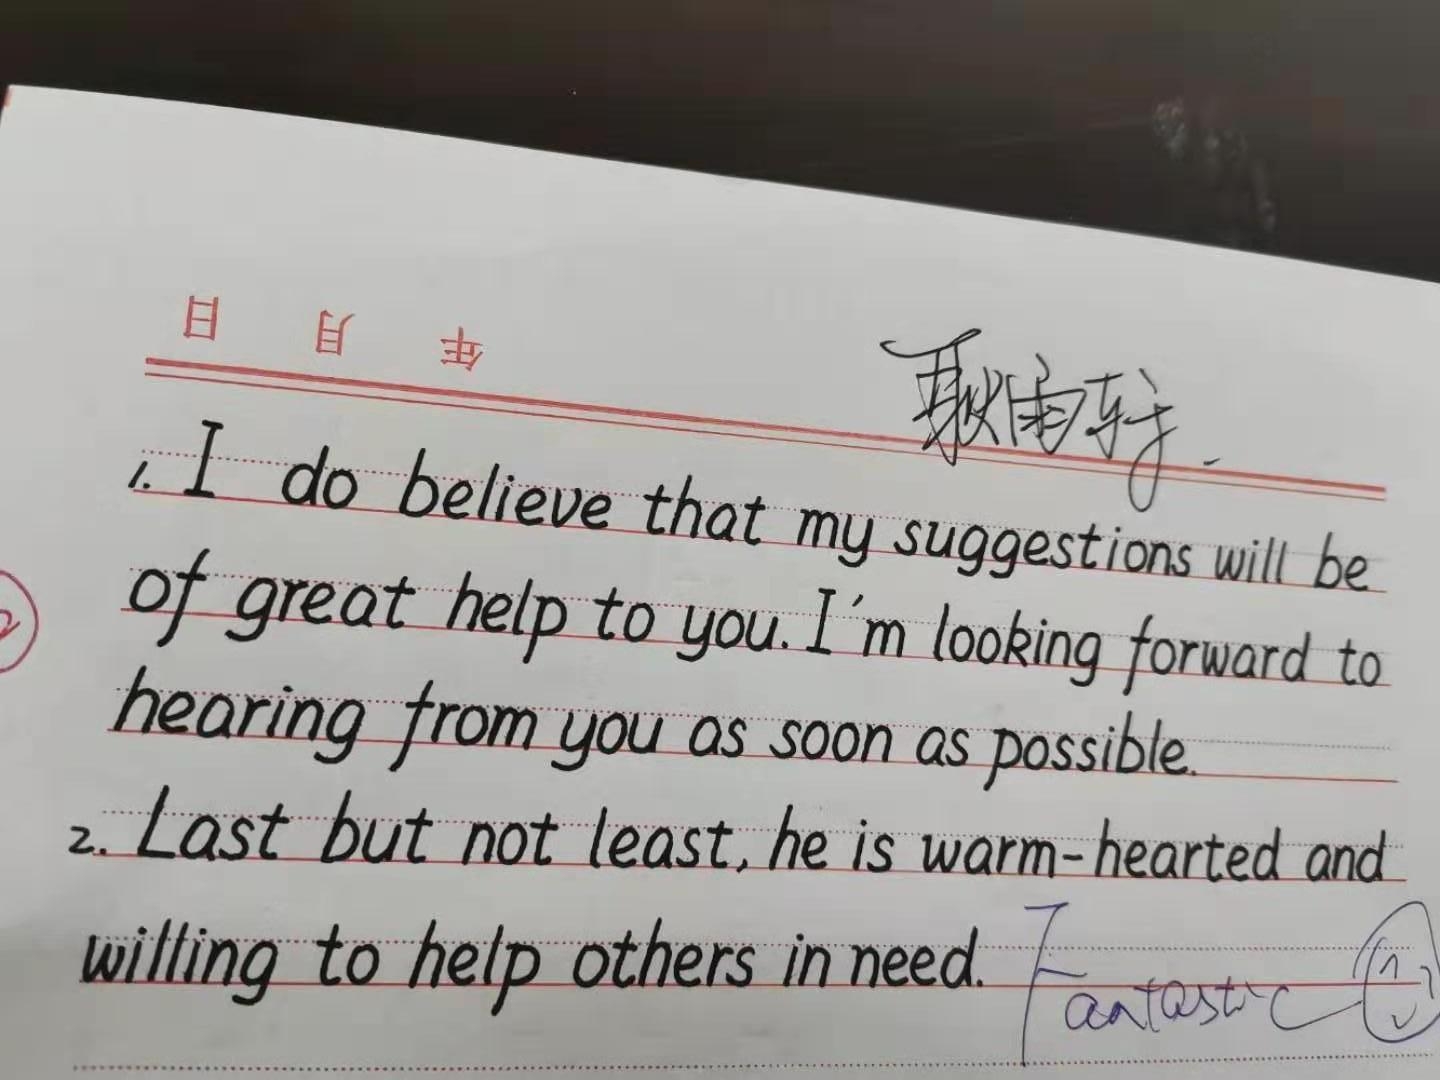 日 月 年
耿雨轩
1. I do believe that my suggestions will be
of great help to you. I'm looking forward to
hearing from you as soon as possible.
2. Last but not least, he is warm-hearted and
willing to help others in need.
Fantastic